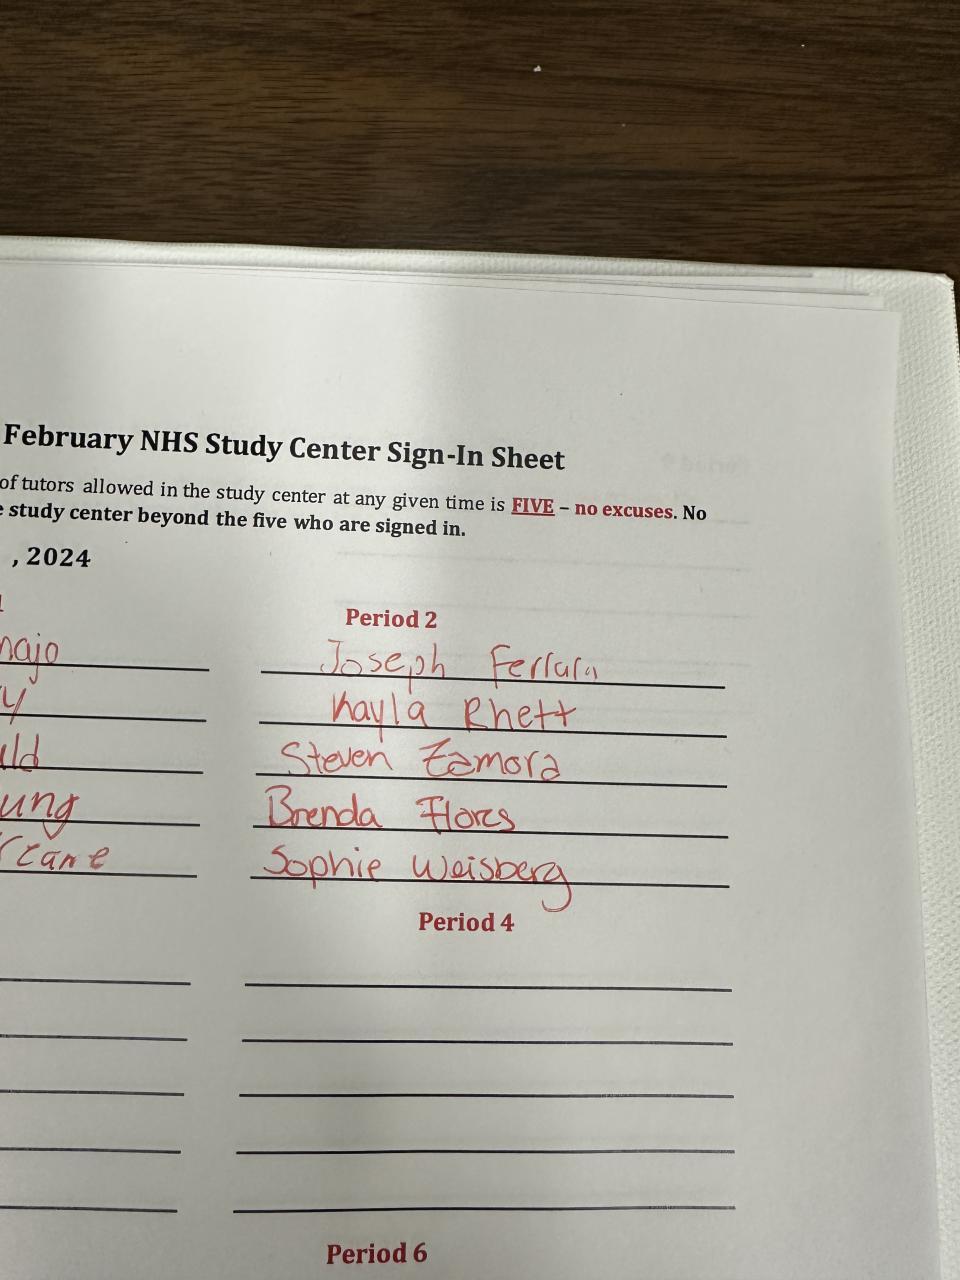 February NHS Study Center Sign-In Sheet
of tutors allowed in the study center at any given time is FIVE – no excuses. No
study center beyond the five who are signed in.
, 2024
Period 2
najo
Joseph Ferrara
y
Kayla Rhett
uld
Steven Zamora
ung
Brenda Flores
Sophie Weisberg
Period 4
Period 6